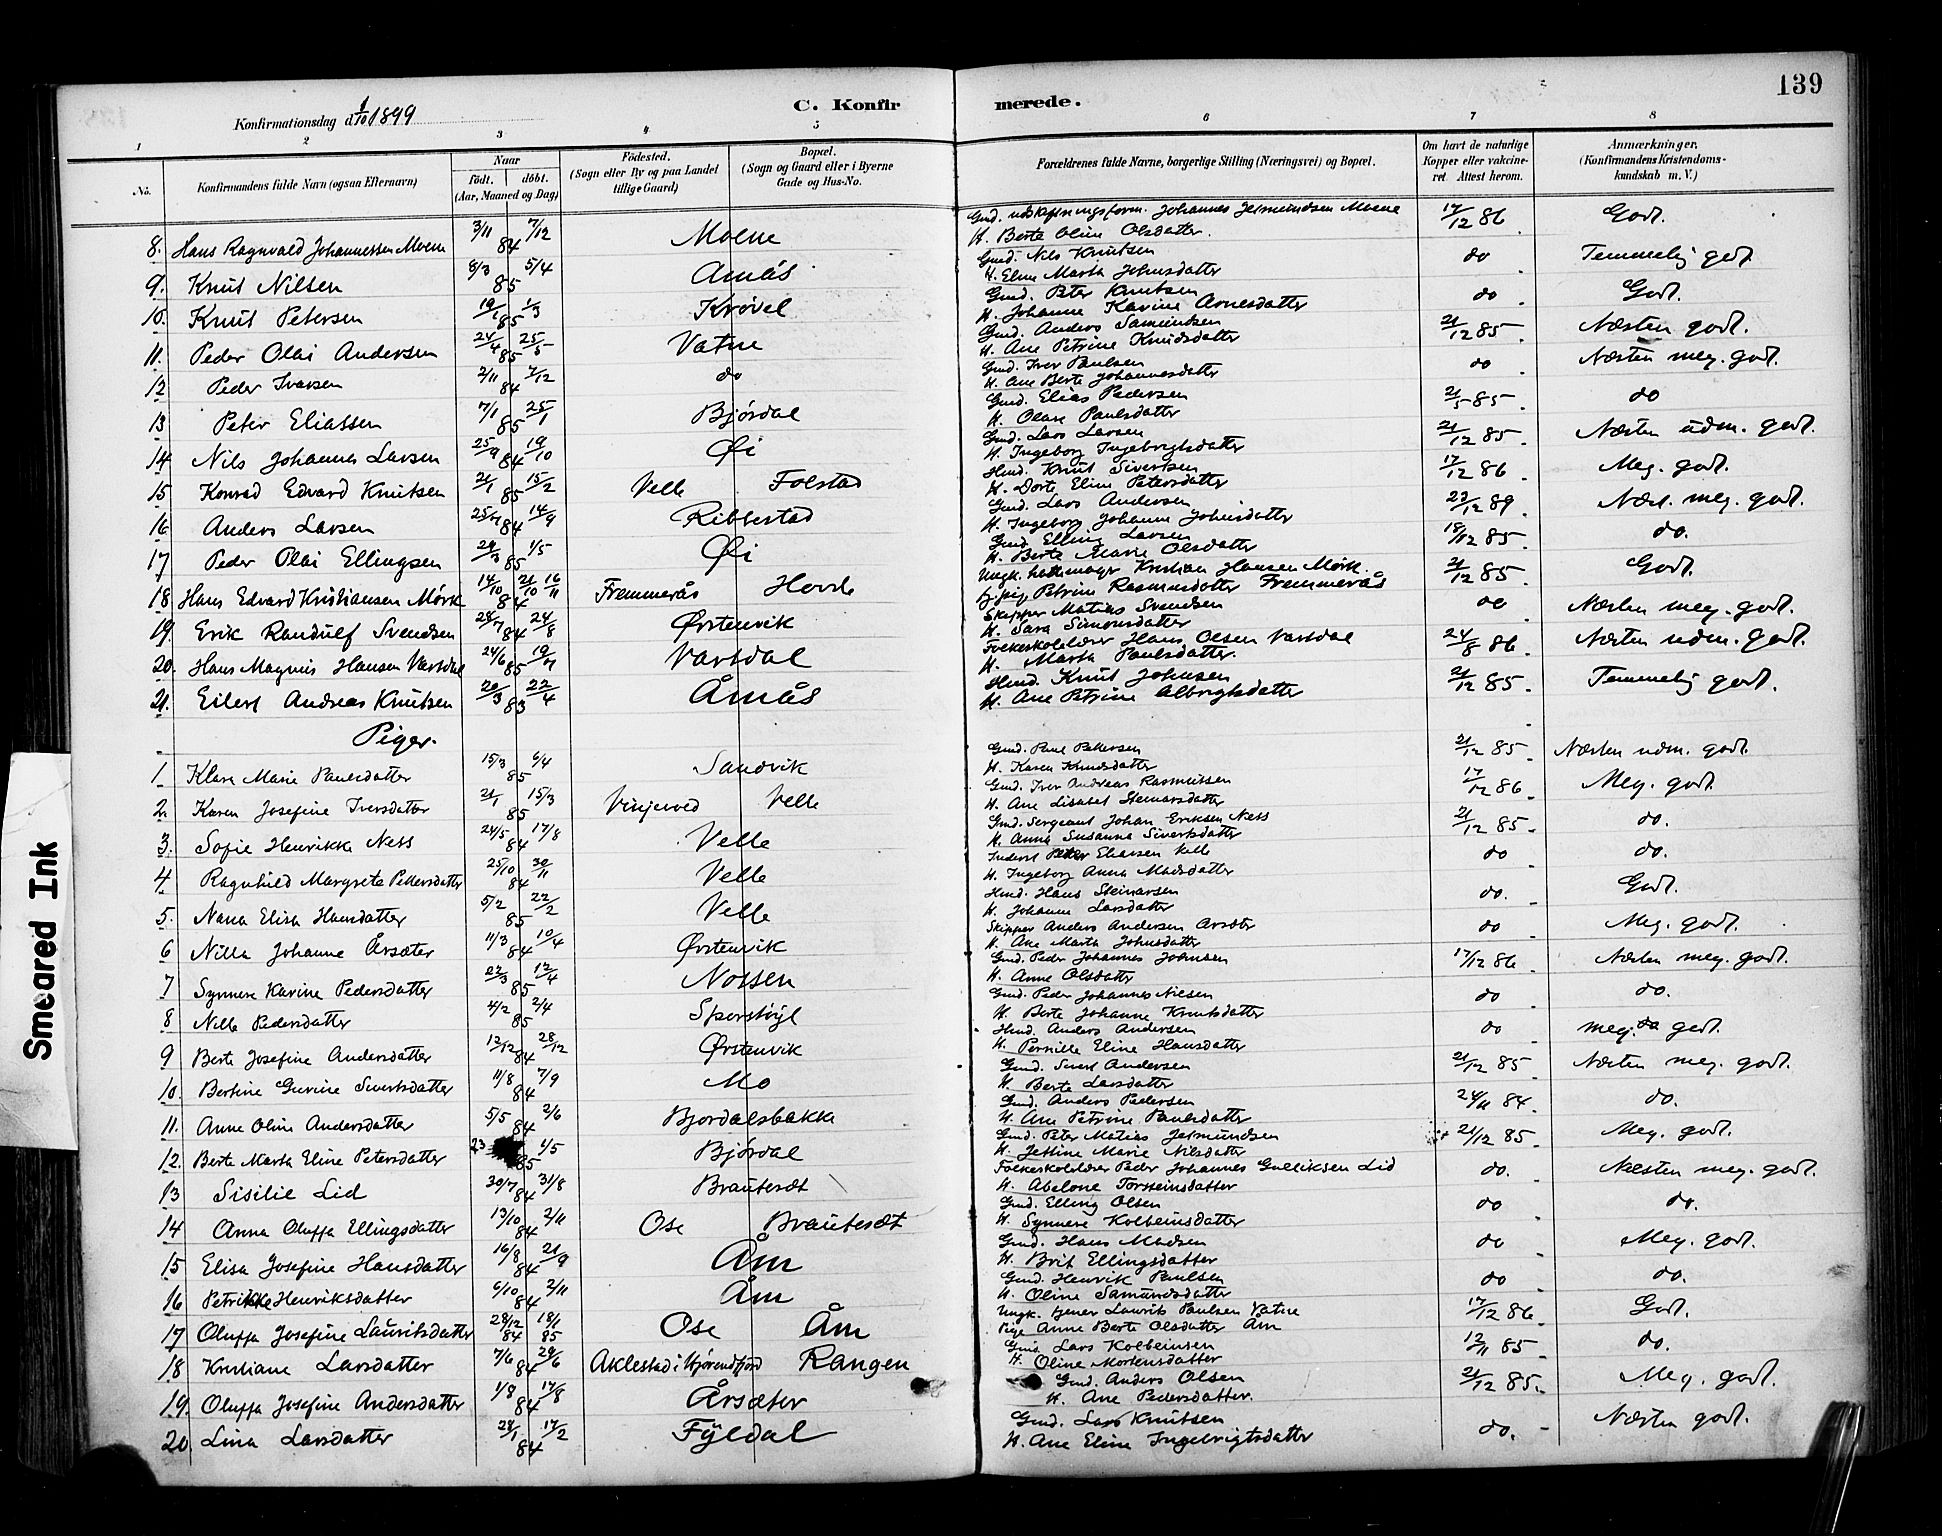 139
Konfirmationsdag d 1/10 1899
C. Konfirmerede.
1 2 3 4 5 6 7 8
No.
Konfirmandens fulde Navn (ogsaa Efternavn)
Naar
födt. döbt.
(Aar, Maaned og Dag)
Födested.
(Sogn eller By og paa Landet tillige Gaard)
Bopæl.
(Sogn og Gaard eller i Byerne Gade og Hus-No.
Forældrenes fulde Navne, borgerlige Stilling (Næringsvei) og Bopæl.
Om havt de naturlige Kopper eller vakcineret. Attest herom.
Anmærkninger.
(Konfirmandens Kristendomskundskab m. V.)
8. Hans Ragnvald Johannessen Moene 3/11 84 7/12 Moene Gmd. Johannes Jetmundsen Moene H. Berte Oline Olsdatter. 17/12 86 Godt.
9. Knut Nilsen 8/3 85 5/4 Åmås Gmd. Nils Knutsen H. Eline Marta Johnsdatter do Temmelig godt.
10. Knut Petersen 19/1 85 1/3 Krøvel Gmd. Peter Knutsen H. Johanne Karine Arnesdatter do Godt.
11. Peder Olai Andersen 24/4 85 25/5 Vatne Gmd. Anders Samuntsen H. Ane Petrine Knudsdatter 21/12 85 Næsten godt.
12 Peder Ivarsen 2/11 84 7/12 do Gmd. Iver Paulsen H. Ane Berte Johannesdatter do Næsten meg. godt.
13 Peter Eliassen 7/1 85 25/1 Bjørdal Gmd. Elias Pedersen H. Olave Paulsdatter 21/5 85 do
14 Nils Johannes Larsen 25/9 84 19/10 Øi Gmd. Lars Larsen H. Ingeborg Ingebrigtsdatter 21/12 85. Næsten udm. godt.
15 Konrad Edvard Knutsen 21/1 85 15/2 Velle Folstad Hmd. Knut Sivertsen H. Dorte Eline Petersdatter 17/12 86 Meg. godt.
16 Anders Larsen 25/7 84 14/9 Ribbestad Gmd. Lars Andersen H. Ingeborg Johanne Johnsdatter 23/12 89 Næst. meg. godt.
17 Peder Olai Ellingsen 29/3 85 1/5 Øi Gmd Elling Larsen H. Berte Marie Olsdatter 18/12 85 do.
18 Hans Edvard Kristiansen Mørk 14/10 84 21/10 16/11 Fremmerås Hovde Ungk. Kristian Hansen Mørk. Petrine Rasmusdatter Fremmerås 21/12 85 Godt.
19. Erik Randulf Svendsen 28/7 84 24/8 Ørstenvik Skipper Matias Svendsen H. Sara Simonsdatter do Næsten meg. godt.
20. Hans Magnus Hansen Vartdal 24/6 85 19/7 Vartdal Folkeskolelærer Hans Olsen Vartdal H. Marta Paulsdatter. 24/8 86. Næsten udm. godt.
21. Eilert Andreas Knutsen 20/3 83 22/4 Åmås Hmd. Knut Johnsen H. Ane Petrine Albrigtsdatter 21/12 85. Temmelig godt.
Piger.
1. Klara Marie Paulsdatter 15/3 85 6/4 Sandvik Gmd. Paul Pettersen H. Karen Knudsdatter 21/12 85 Næsten udm. godt.
2. Karen Josefine Iversdatter 21/1 85 15/3 Velle Gmd. Iver Andreas Rasmussen H. Ane Lisabet Steinarsdatter 17/12 86. Meg. godt.
3. Sofie Henrikke Ness 24/5 84 17/8 Velle Gmd. Sergeant Johan Eriksen Ness H. Anna Susanna Sivertsdatter 21/12 85. do.
4 Ragnhild Margrete Pettersdatter 25/10 84 30/11 Velle Inderst Petter Eliassen Velle H. Ingeborg Anna Madsdatter do do.
5. Nana Elisa Hansdatter 5/2 85 22/2 Velle Hmd. Hans Steinarsen H. Johanne Larsdatter do. Godt.
6 Nilla Johanne Årsæter 11/3 84 10/4 Ørstenvik Skipper Anders Andersen Årsæter H. Ane Marta Johnsdatter do Meg. godt.
7 Synnøve Karine Pedersdatter 22/3 85 12/4 Nossen Gmd. Peder Johannes Johnsen H. Anne Olsdatter 17/12 86 Næsten meg. godt.
8 Nille Pedersdatter 4/2 85 2/4 Sporstøyl Gmd. Peder Johannes Nilsen H. Berte Johanne Knutsdatter do do.
9 Berte Josefine Andersdatter 12/12 84 28/12 Ørstenvik Hmd. Anders Andersen H. Pernille Eline Hansdatter do meg. godt.
10. Bertine Gurine Sivertsdatter 11/8 84 7/9 Mo Gmd. Sivert Andersen H. Berte Larsdatter 21/12 85 Næsten meg. godt.
11. Anne Oline Andersdatter 5/5 84 2/6 Bjordalsbakke Gmd. Anders Pedersen H. Ane Petrine Paulsdatter 24/11 84. do.
12. Berte Marta Eline Petersdatter 23 85 1/5 Bjørdal Gmd. Peter Matias Jetmundsen H. Jettine Marie Nilsdatter 21/12 85. Meg. godt.
13 Sisilie Lid 30/7 84 31/8 Brautesæt Folkeskolelærer Peder Johannes Gulliksen Lid H. Abelone Torsteinsdatter do. Næsten meg. godt.
14 Anna Oluffa Ellingsdatter 13/10 84 2/11 Ose Brautesæt Gmd. Elling Olsen H. Synnøve Kolbeinsdatter do do.
15 Elisa Josefine Hansdatter 16/8 84 21/9 Åm Gmd. Hans Madsen H. Brit Ellingsdatter do Meg. godt.
16 Petrikke Henriksdatter 6/10 84 2/11 Åm Gmd. Henrik Paulsen H. Oline Samundsdatter do do.
17 Oluffa Josefine Lauritsdatter 28/12 84 18/1 85 Ose Åm Ungk. tjener Laurits Paulsen Vatne Pige Anne Berte Olsdatter Åm 17/12 86 Godt.
18 Kristiane Larsdatter 7/6 84 29/6 Aklestad i Hjørendfjord Rangen Gmd. Lars Kolbeinsen H. Oline Mortensdatter 12/11 85 do.
19. Oluffa Josefine Andersdatter 1/8 84 17/8 Årsæter Gmd. Anders Olsen H. Ane Pedersdatter. 21/12 85. Meg. godt.
20. Lina Larsdatter 28/1 84 17/2 Fyldal Gmd. Lars Knutsen H. Ane Eline Ingebrigtsdatter do. Næsten godt.
Smeared Ink